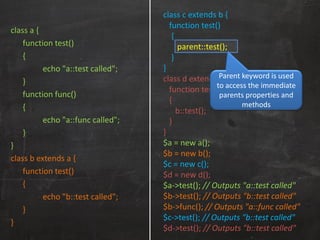 class a {
function test()
{
echo "a::test called";
}
function func()
{
echo "a::func called";
}
}
class b extends a {
function test()
{
echo "b::test called";
}
}
class c extends b {
function test()
{
parent::test();
}
}
class d extend
function te
{
b::test();
}
}
Parent keyword is used
to access the immediate
parents properties and
methods
$a = new a();
$b = new b();
$c = new c();
$d = new d();
$a->test(); // Outputs "a::test called"
$b->test(); // Outputs "b::test called"
$b->func(); // Outputs "a::func called"
$c->test(); // Outputs "b::test called"
$d->test(); // Outputs "b::test called"